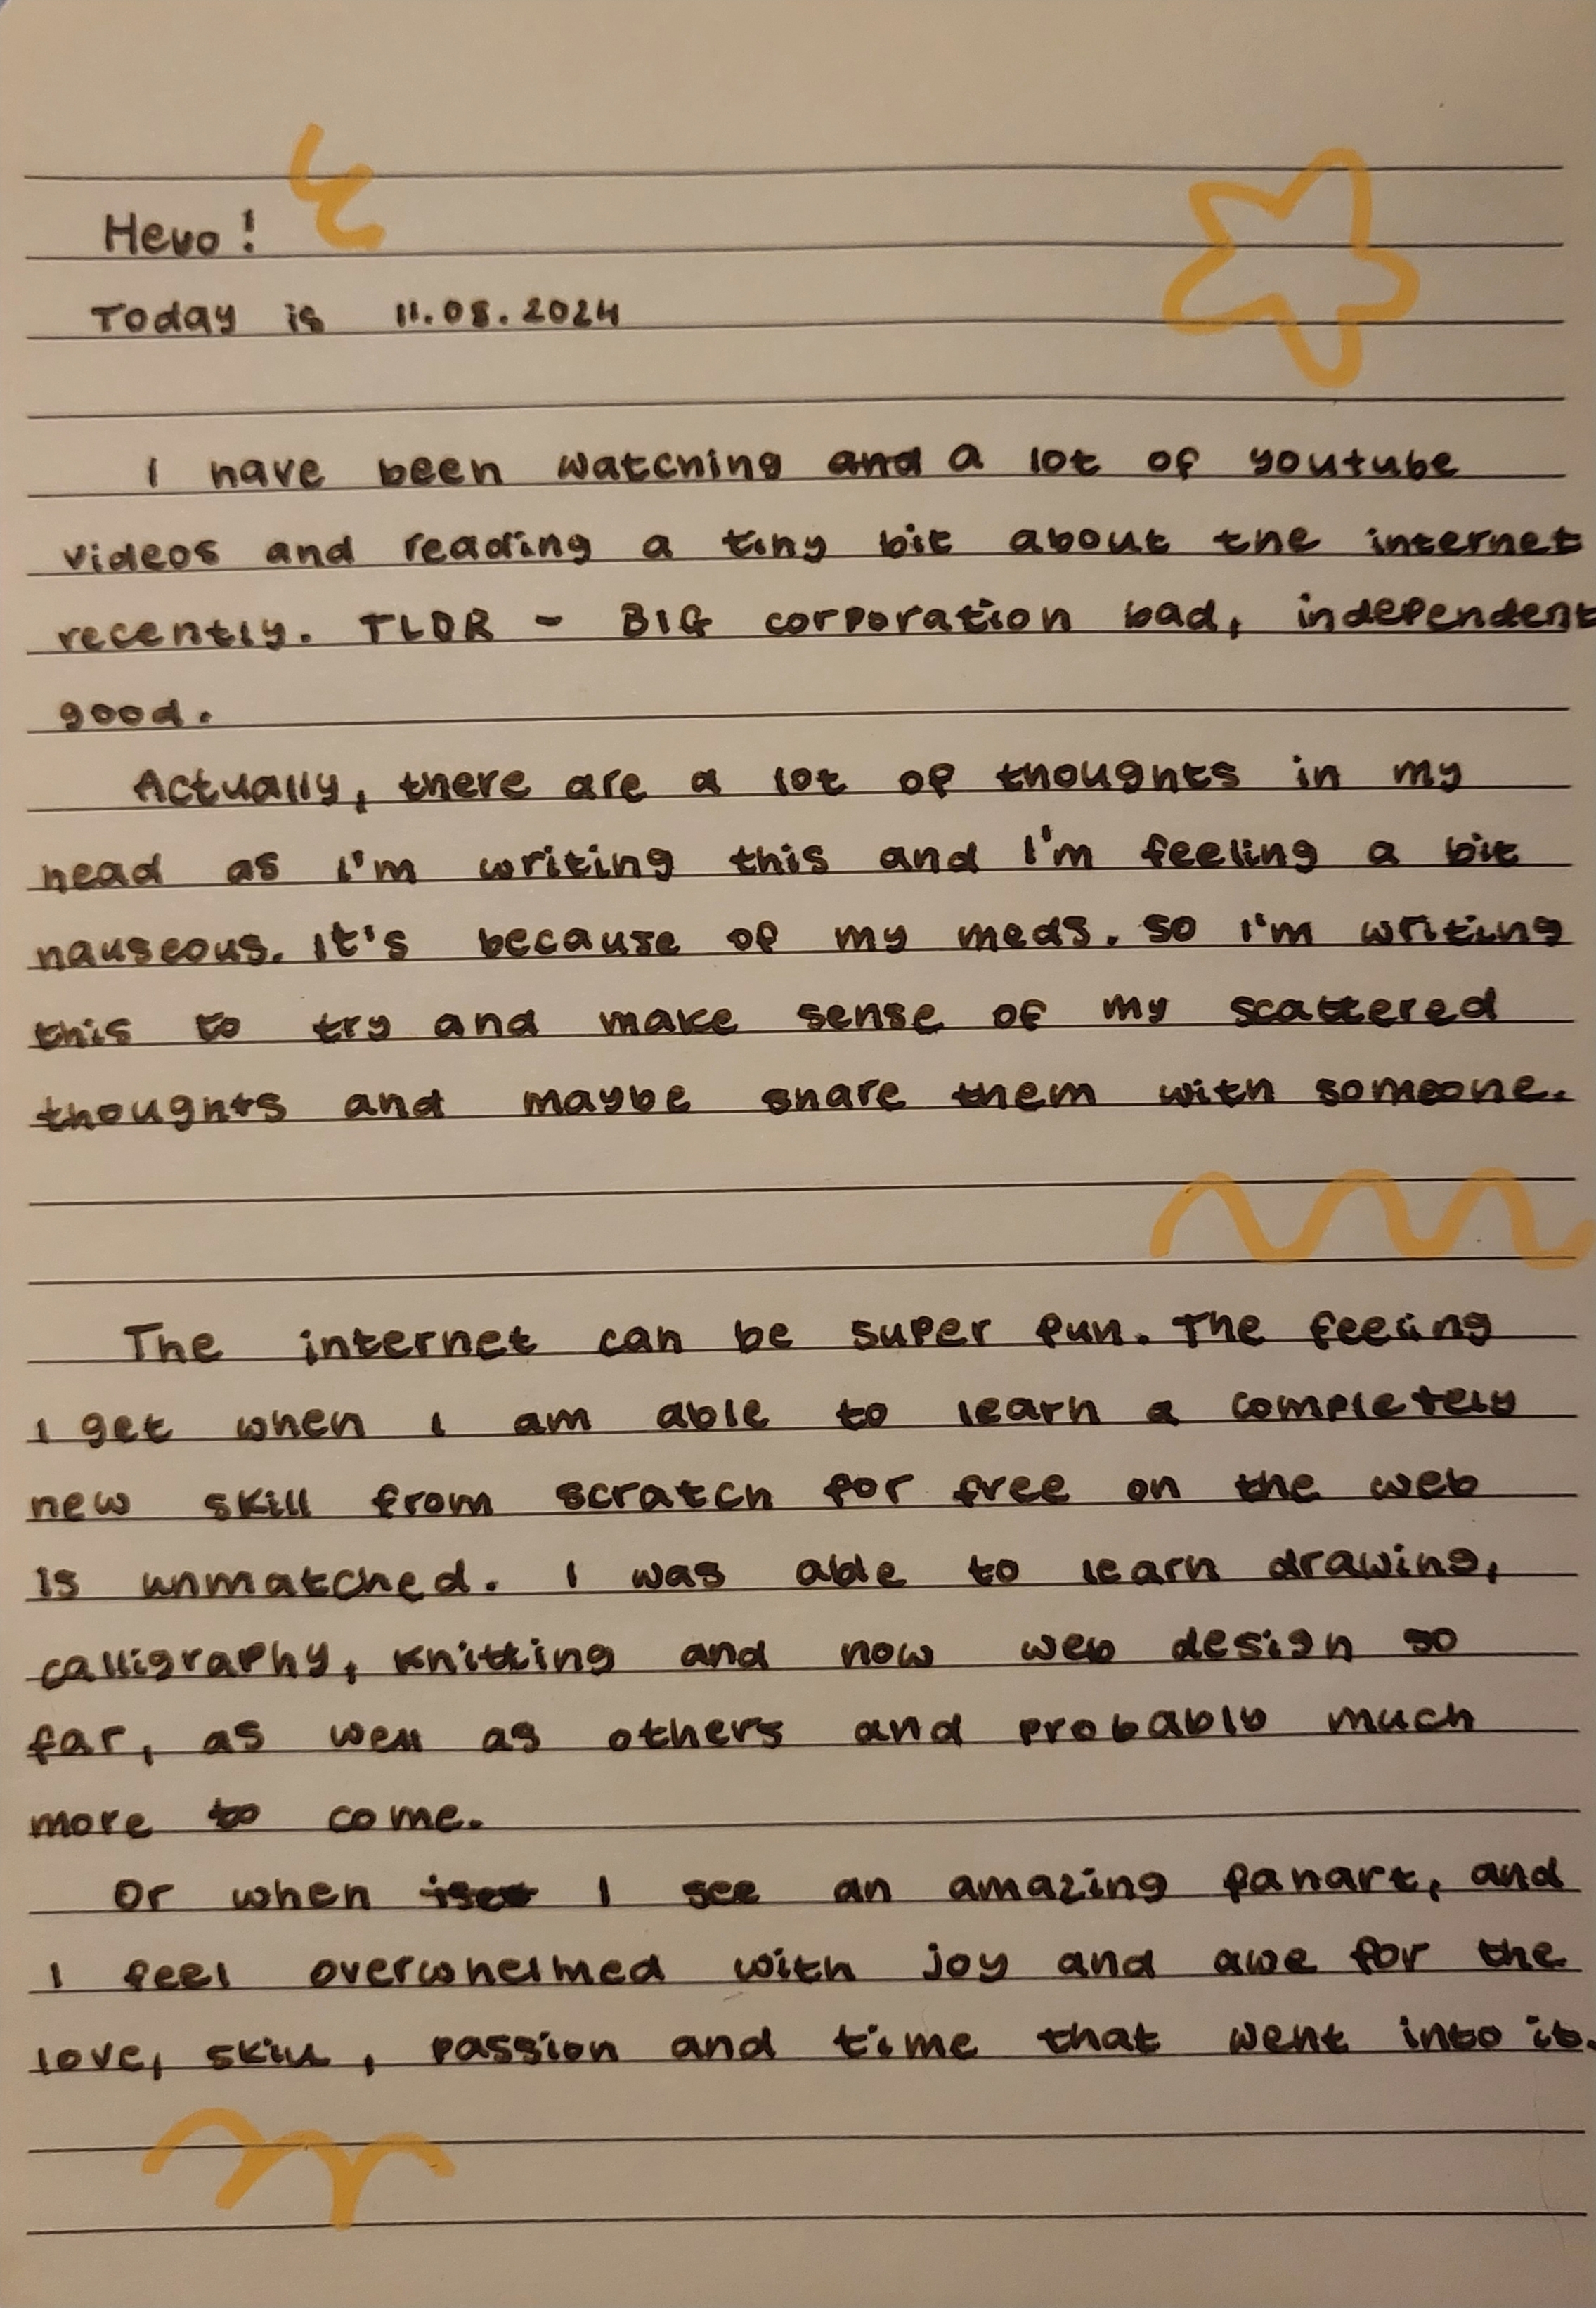 Hello!
Today is 11.08.2024
I have been watching and a lot of youtube
videos and reading a tiny bit about the internet
recently. TLDR - BIG corporation bad, independent
good.
Actually, there are a lot of thoughts in my
head as I'm writing this and I'm feeling a bit
nauseous. It's because of my meds. So I'm writing
this to try and make sense of my scattered
thoughts and maybe share them with someone.
The internet can be super fun. The feeling
I get when I am able to learn a completely
new skill from scratch for free on the web
is unmatched. I was able to learn drawing,
calligraphy, knitting and now web design so
far, as well as others and probably much
more to come.
Or when I see an amazing fanart, and
I feel overwhelmed with joy and awe for the
love, skill, passion and time that went into it.